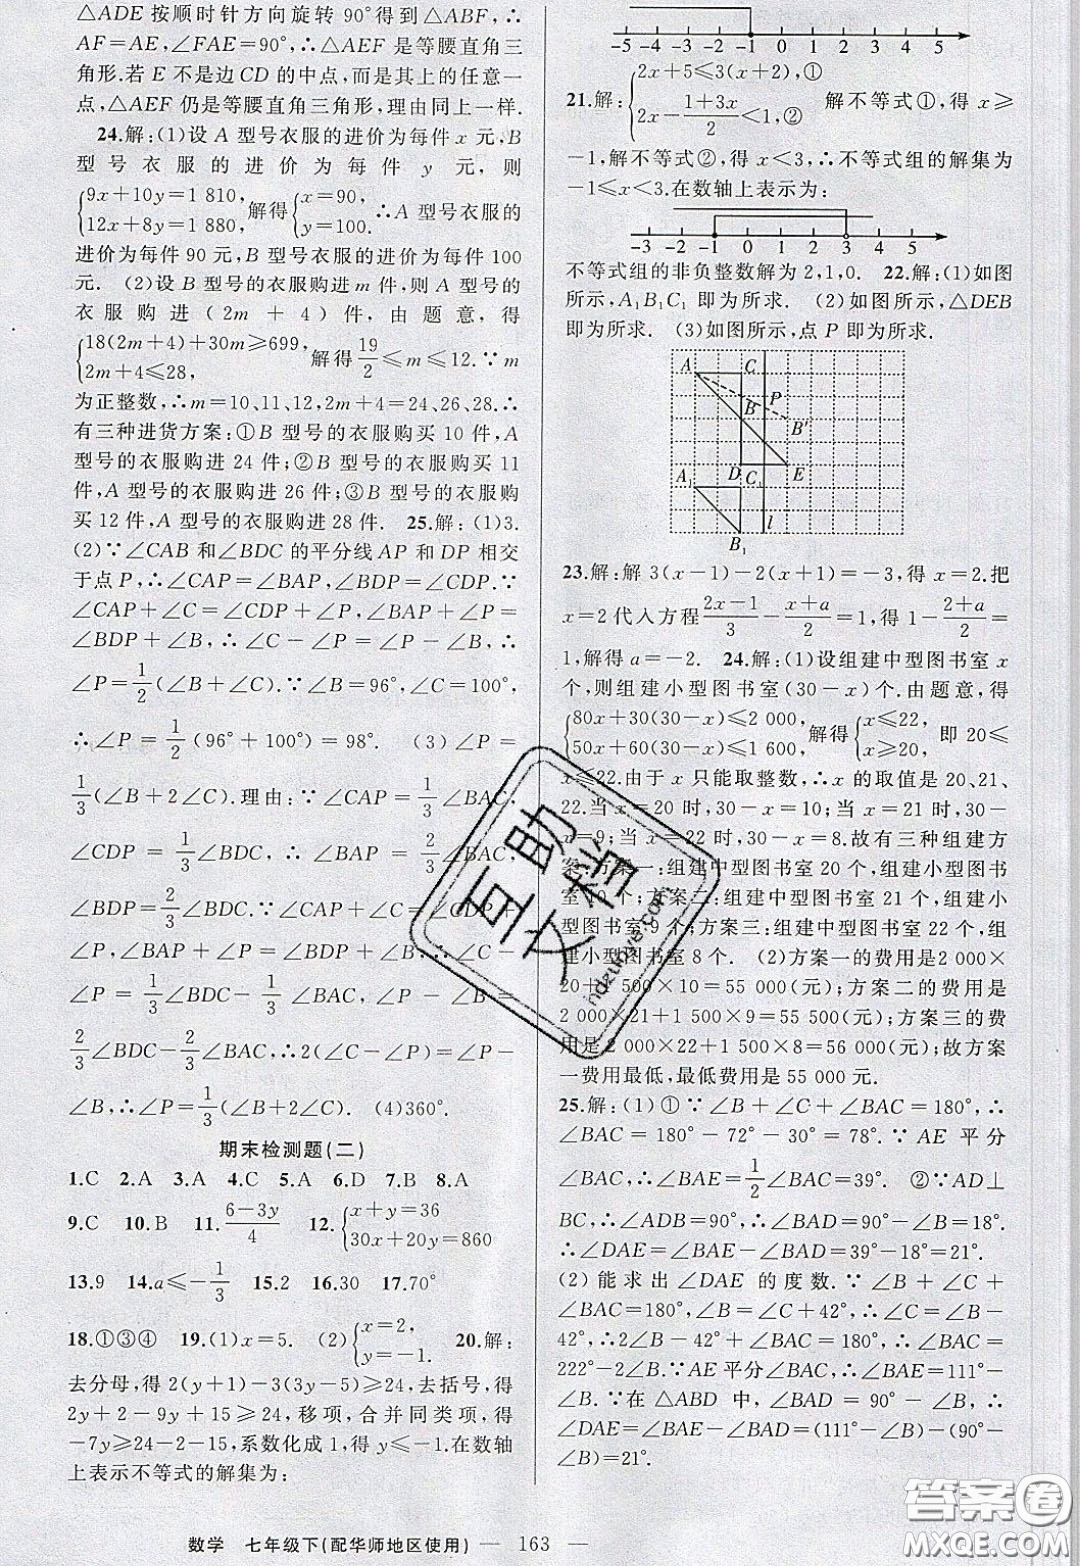 △ADE 按顺时针方向旋转 90°得到△ABF,∴
AF=AE,∠FAE=90°,∴△AEF 是等腰直角三
角形.若 E 不是边 CD 的中点,而是其上的任意一
点,△AEF 仍是等腰直角三角形,理由同上一样.
24.解:(1)设 A 型号衣服的进价为每件 x 元,B
型号衣服的进价为每件 y 元,则
{9x+10y=1 810, 12x+8y=1 880, 解得{x=90, y=100. ∴A 型号衣服的
进价为每件 90 元,B 型号衣服的进价为每件 100
元. (2)设 B 型号的衣服购进 m 件,则 A 型号的
衣服购进(2m+4)件,由题意,得
{18(2m+4)+30m≥699, 2m+4≤28, 解得 19/2≤m≤12.∵m
为正整数,∴m=10、11、12,2m+4=24、26、28.∴
有三种进货方案:①B 型号的衣服购买 10 件,A
型号的衣服购进 24 件;②B 型号的衣服购买 11
件,A 型号的衣服购进 26 件;③B 型号的衣服购
买 12 件,A 型号的衣服购进 28 件. 25.解:(1)3.
(2)∵∠CAB 和∠BDC 的平分线 AP 和 DP 相交
于点 P,∴∠CAP=∠BAP,∠BDP=∠CDP.∵
∠CAP+∠C=∠CDP+∠P,∠BAP+∠P=
∠BDP+∠B,∴∠C-∠P=∠P-∠B,∴
∠P=1/2(∠B+∠C).∵∠B=96°,∠C=100°,
∴∠P=1/2(96°+100°)=98°. (3)∠P=
1/3(∠B+2∠C).理由:∵∠CAP=1/3∠BAC,
∠CDP=1/3∠BDC,∴∠BAP=2/3∠BAC,
∠BDP=2/3∠BDC.∵∠CAP+∠C=∠CDP+
∠P,∠BAP+∠P=∠BDP+∠B,∴∠C-
∠P=1/3∠BDC-1/3∠BAC,∠P-∠B=
2/3∠BDC-2/3∠BAC,∴2(∠C-∠P)=∠P-
∠B,∴∠P=1/3(∠B+2∠C). (4)360°.
期末检测题(二)
1.C 2.A 3.A 4.C 5.A 6.D 7.B 8.A
9.C 10.B 11.(6-3y)/4 12.{x+y=36 30x+20y=860
13.9 14.a≤-1/3 15.2 16.30 17.70°
18.①③④ 19.(1)x=5. (2){x=2, y=-1. 20.解:
去分母,得 2(y+1)-3(3y-5)≥24,去括号,得
2y+2-9y+15≥24,移项,合并同类项,得
-7y≥24-2-15,系数化成 1,得 y≤-1.在数轴
上表示不等式的解集为:
-5 -4 -3 -2 -1 0 1 2 3 4 5
21.解:{2x+5≤3(x+2),① 2x-(1+3x)/2<1,② 解不等式①,得 x≥
-1,解不等式②,得 x<3,∴不等式组的解集为
-1≤x<3.在数轴上表示为:
-3 -2 -1 0 1 2 3 4 5
不等式组的非负整数解为 2,1,0. 22.解:(1)如图
所示,A₁B₁C₁ 即为所求. (2)如图所示,△DEB
即为所求. (3)如图所示,点 P 即为所求.
A C P B B' D E A₁ C₁ B₁ l
23.解:解 3(x-1)-2(x+1)=-3,得 x=2.把
x=2 代入方程(2x-1)/3-(x+a)/2=1,得 1-(2+a)/2=
1,解得 a=-2. 24.解:(1)设组建中型图书室 x
个,则组建小型图书室(30-x)个.由题意,得
{80x+30(30-x)≤2 000, 50x+60(30-x)≤1 600, 解得{x≤22, x≥20, 即 20≤
x≤22.由于 x 只能取整数,∴x 的取值是 20、21、
22.当 x=20 时,30-x=10;当 x=21 时,30-
x=9;当 x=22 时,30-x=8.故有三种组建方
案:方案一:组建中型图书室 20 个,组建小型图书
室 10 个;方案二:组建中型图书室 21 个,组建小
型图书室 9 个;方案三:组建中型图书室 22 个,组
建小型图书室 8 个. (2)方案一的费用是 2 000×
20+1 500×10=55 000(元);方案二的费用是
2 000×21+1 500×9=55 500(元);方案三的费
用是 2 000×22+1 500×8=56 000(元);故方案
一费用最低,最低费用是 55 000 元.
25.解:(1)①∵∠B+∠C+∠BAC=180°,∴
∠BAC=180°-72°-30°=78°.∵AE 平分
∠BAC,∴∠BAE=1/2∠BAC=39°. ②∵AD⊥
BC,∴∠ADB=90°,∴∠BAD=90°-∠B=18°.
∴∠DAE=∠BAE-∠BAD=39°-18°=21°.
(2)能求出∠DAE 的度数.∵∠B+∠C+
∠BAC=180°,∠B=∠C+42°,∴∠C=∠B-
42°,∴2∠B-42°+∠BAC=180°,∴∠BAC=
222°-2∠B.∵AE 平分∠BAC,∴∠BAE=111°-
∠B.∵在△ABD 中,∠BAD=90°-∠B,∴
∠DAE=∠BAE-∠BAD=(111°-∠B)-(90°-
∠B)=21°.
数学 七年级下(配华师地区使用) — 163 —
互助文档
hdzuhye.com
答案卷
MXQE.COM